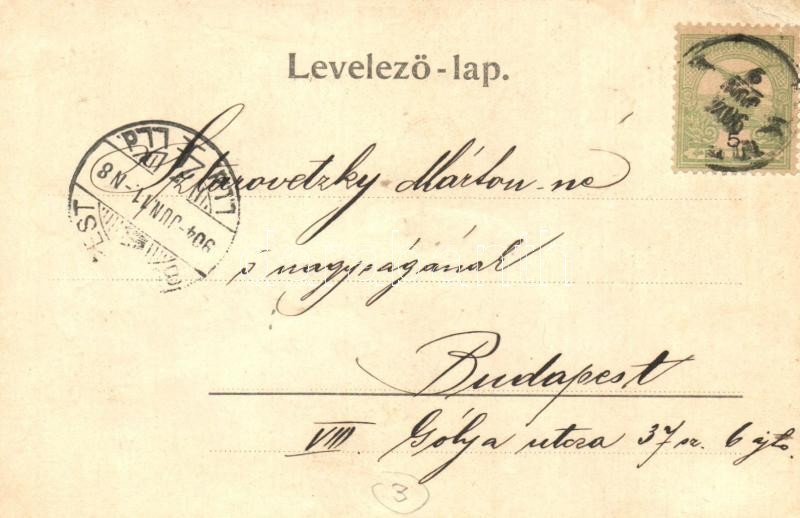 Levelező-lap.
Marovetzky Márton-né
ő nagyságának
Budapest
VIII Gólya utcza 37 sz. 6 ajtó.
904 JUN 11 N 8
5
3